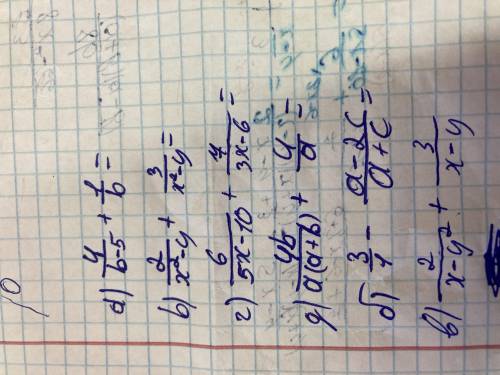 а) 4/(b-5) + 1/b =
b) 2/(x²-y) + 3/(x²-y) =
г) 6/(5x-10) + 7/(3x-6) =
g) 4b/(a(a+b)) + 4/a =
б) 3/1 - (a-2c)/(a+c) =
в) 2/(x-y²) + 3/(x-y)